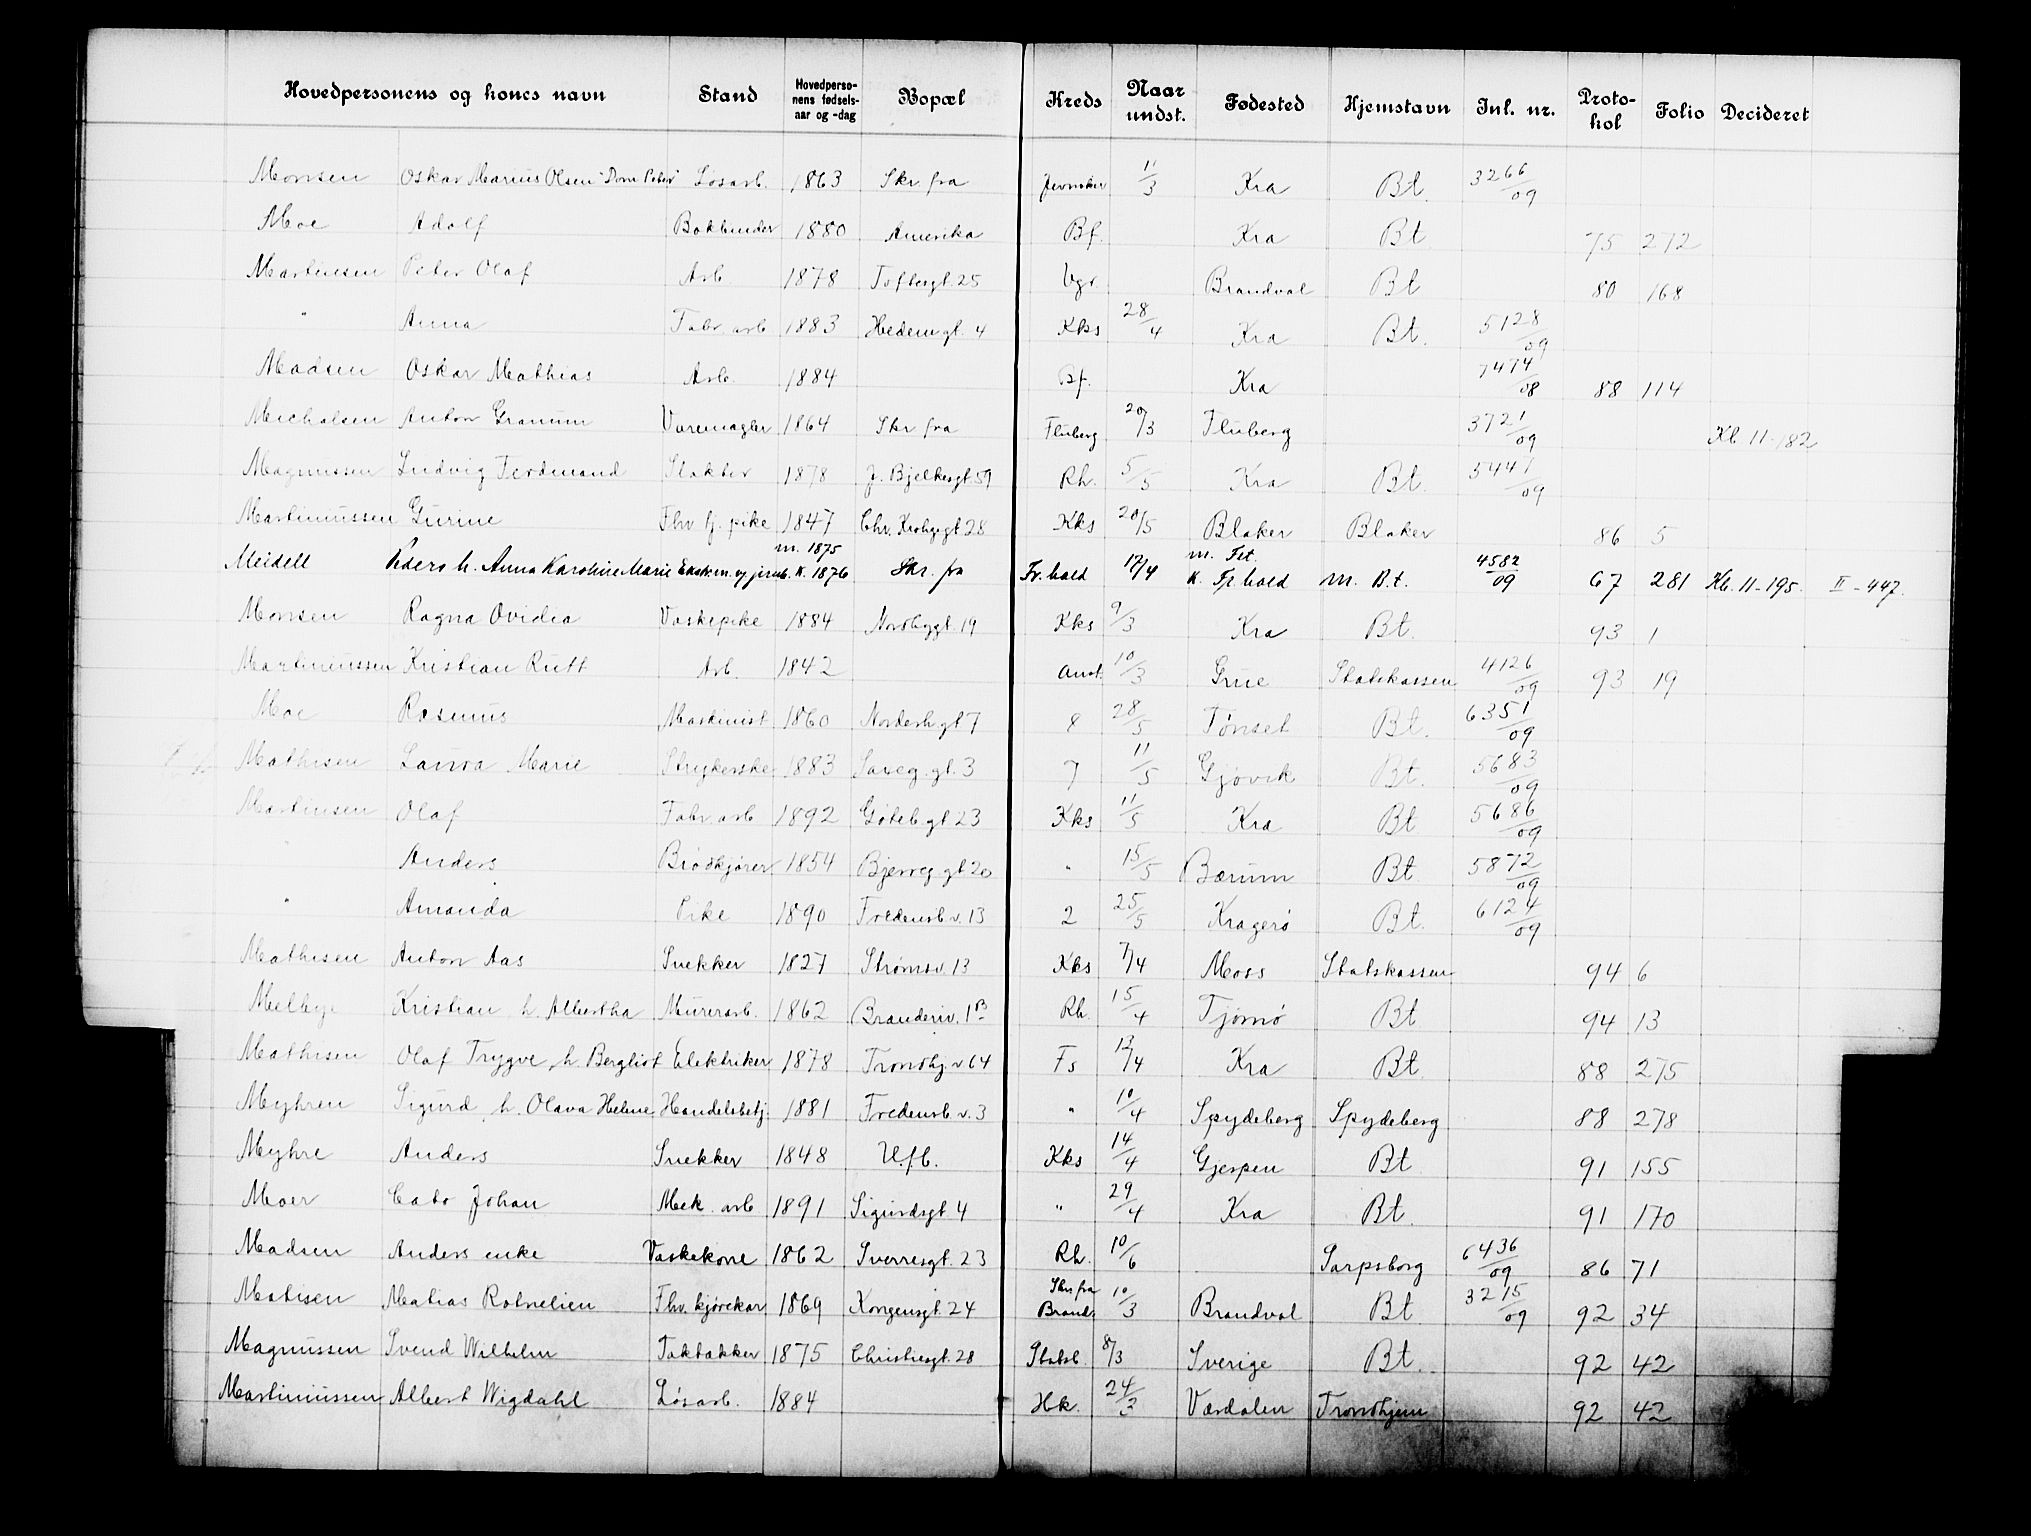 Hovedpersonens og kones navn Stand Hovedpersonens fødselsaar og -dag Bopæl Kreds Naar undst. Fødested Hjemstavn Inl. nr. Protokol Folio Decideret
Monsen Oskar Marius Olsen "Dom Peter" Løsarb. 1863 Skr. fra Jevnaker 11/3 Kra Bt. 3266/09
Moe Adolf Bokbinder 1880 Amerika Bf. Kra Bt. 75 272
Martinsen Peter Olaf Arb. 1878 Toftesgt. 25 Vgr. Brandval Bt 80 168
" Anna Fabr. arb 1883 Hedem gt. 4 Kks 28/4 Kra Bt. 5128/09
Madsen Oskar Mathias Arb. 1884 Bf. Kra 7474/08 88 114
Micholsen Anton Granum Varemægler 1864 Skr fra Fluberg 20/3 Fluberg 3721/09 Kb. 11-182
Magnussen Ludvig Ferdinand Slakter 1878 J. Bjelkesgt 59 Rh. 5/5 Kra Bt. 5447/09
Martinussen Gurine Fhv tj. pike 1847 Chr. Krohgsgt 28 Kks 20/5 Blaker Blaker 86 5
Meidell Peders h. Anna Karoline Marie m. 1875 k. 1876 Skr. fra Fr. hald 17/4 m. Fst. k. Fr. hald m. Bt. 4582/09 67 281 Kb. 11-195. II-447.
Monsen Ragna Ovidia Vaskepike 1884 Nordbygt. 19 Kks 9/3 Kra Bt. 93 1
Martiniussen Kristian Rutt Arb. 1842 Amt. 10/3 Grue Statskassen 4126/09 93 19
Moe Rasmus Maskinist 1860 Norderh gt 7 8 28/5 Tønset Bt. 6351/09
Mathisen Laura Marie Strykerske 1883 Saxeg. gt. 3 7 11/5 Gjøvik Bt. 5683/09
Martinsen Olaf Fabr arb 1892 Gøteb. gt 23 Kks 11/5 Kra Bt 5686/09
" Anders Brødkjører 1854 Bjerreg. gt 20 " 15/5 Bærum Bt. 5872/09
" Amanda Pike 1890 Fredensb v. 13 2 25/5 Kragerø Bt. 6124/09
Mathisen Anton Aas Snekker 1827 Strømsv. 13 Kks 7/4 Moss Statskassen 94 6
Melbye Kristian h. Albertha Murerarb. 1862 Branderiv. 1B Rh. 15/4 Tjømø Bt 94 13
Mathisen Olaf Trygve, h. Bergliot Elektriker 1878 Trondhj. v 64 Fs 13/4 Kra Bt. 88 275
Myhren Sigurd, h. Olava Helene Handelsbetj. 1881 Fredensb v. 3 " 10/4 Spydeberg Spydeberg 88 278
Myhre Anders Snekker 1848 U.f.b. Kks 14/4 Gjerpen Bt. 91 155
Moer Cato Johan Mek. arb 1891 Sigurdsgt 4 " 29/4 Kra Bt. 91 170
Madsen Anders enke Vaskekone 1862 Sverresgt. 23 Rh. 10/6 Sarpsborg 6436/09 86 71
Matisen Matias Rotnelien Fhv. kjørekar 1869 Kongensgt. 24 Skr fra Brand. 10/3 Brandval Bt. 3215/09 92 34
Magnussen Svend Wilhelm Taktækker 1875 Christiesgt. 28 Statsb. 8/3 Sverige Bt. 92 42
Martiniussen Albert Wigdahl Løsarb. 1884 Hk. 24/3 Værdalen Trondhjem 92 42